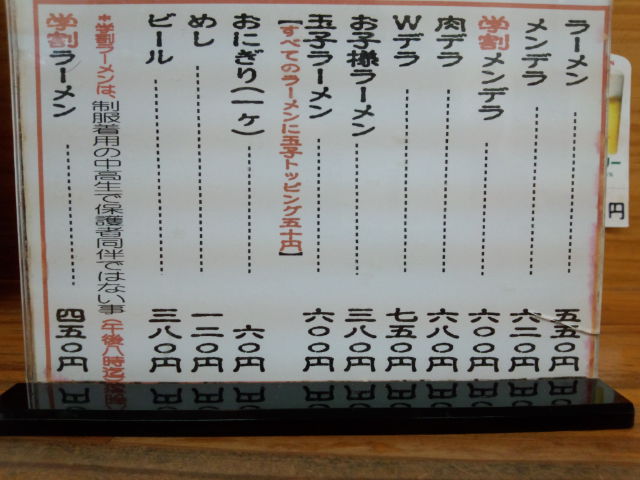 ラーメン 五五〇円
メンデラ 六二〇円
学割メンデラ 六〇〇円
肉デラ 六八〇円
Wデラ 七五〇円
お子様ラーメン 三八〇円
玉子ラーメン 六〇〇円
【すべてのラーメンに玉子トッピング五十円】
おにぎり(一ヶ) 六〇円
めし 一二〇円
ビール 三八〇円
*学割ラーメンは、制服着用の中高生で保護者同伴ではない事(午後八時迄)
学割ラーメン 四五〇円
円